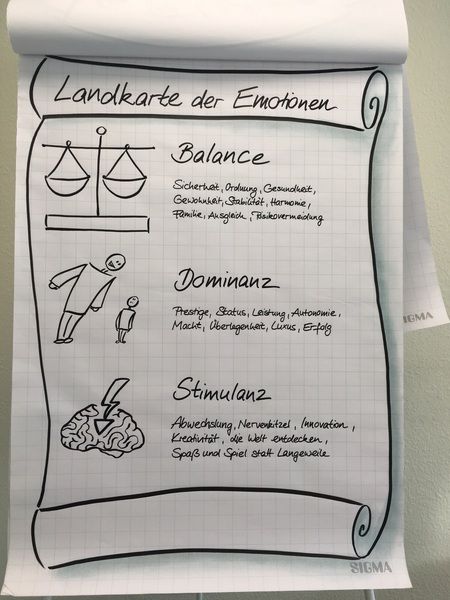 Landkarte der Emotionen
Balance
Sicherheit, Ordnung, Gesundheit,
Gewohnheit, Stabilität, Harmonie,
Familie, Ausgleich, Risikovermeidung
Dominanz
Prestige, Status, Leistung, Autonomie,
Macht, Überlegenheit, Luxus, Erfolg
Stimulanz
Abwechslung, Nervenkitzel, Innovation,
Kreativität, die Welt entdecken,
Spaß und Spiel statt Langeweile
SIGMA
IGMA